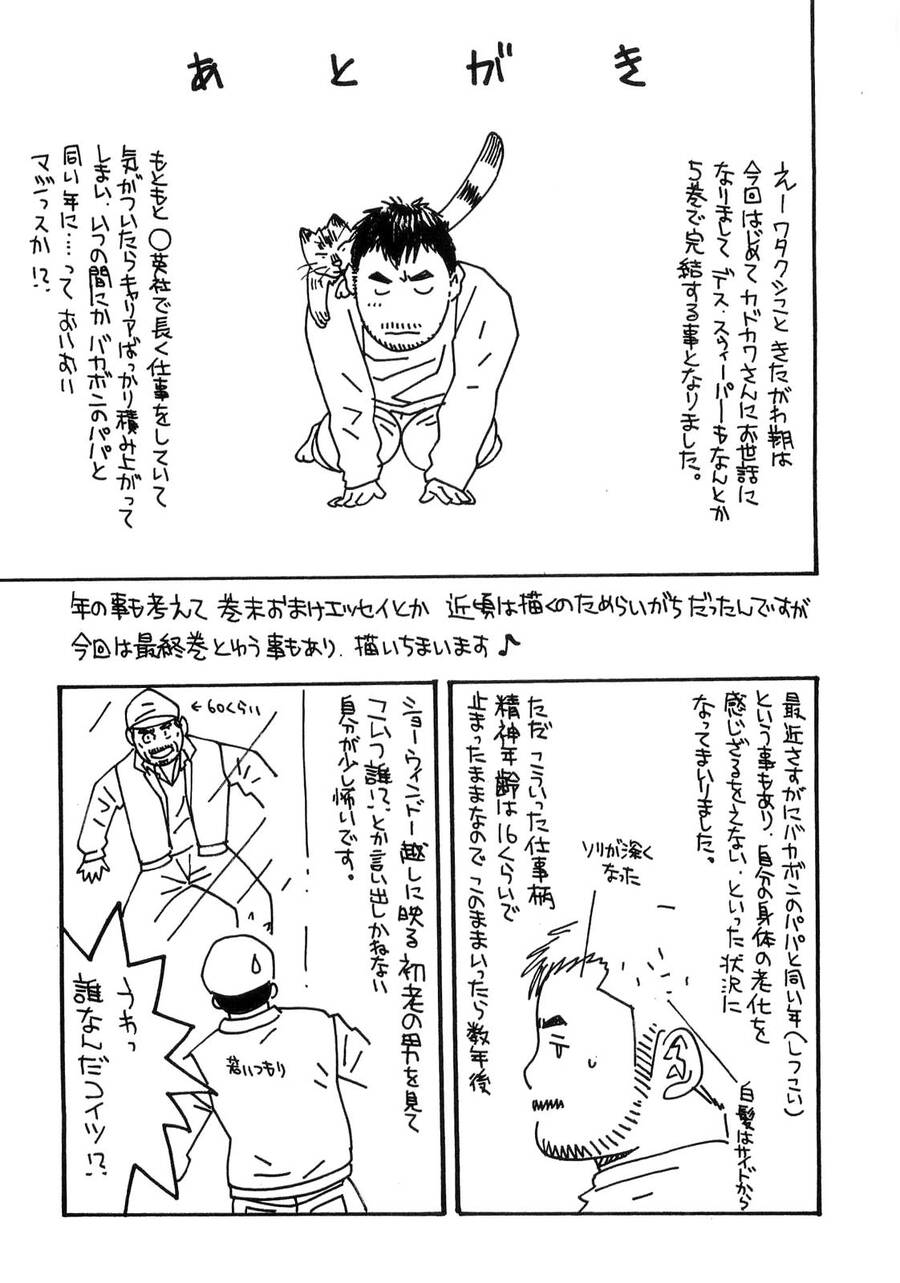 あとがき
えーワタクシこと きたがわ翔は
今回はじめて カドカワさんにお世話に
なりまして デス・スウィーパーもなんとか
5巻で完結する事となりました。
もともと ○英社で長く仕事をしていて
気がついたらキャリアばっかり積み上がって
しまい、いつの間にか バカボンのパパと
同い年に…って おいおい
マジっスか!?
年の事も考えて 巻末おまけエッセイとか 近頃は描くのためらいがちだったんですが
今回は最終巻とゆう事もあり、描いちまいます♪
最近さすがにバカボンのパパと同い年(しつこい)
という事もあり、自分の身体の老化を
感じざるをえない、といった状況に
なってまいりました。
ソリが深く
なった
白髪はサイドから
ただ こういった仕事柄
精神年齢は16くらいで
止まったままなので このままいったら数年後
ショーウィンドー越しに映る初老の男を見て
「こいつ誰て」とか言い出しかねない
自分が少し怖いです。
←60くらい
若いつもり
うわっ
誰なんだコイツ!?